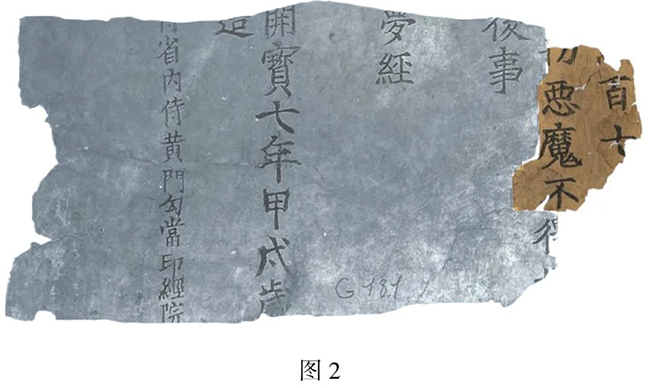 百十
切悪魔不得
後事
夢經
開寶七年甲戌歲
造
侍省内侍黄門勾當印經院
图 2